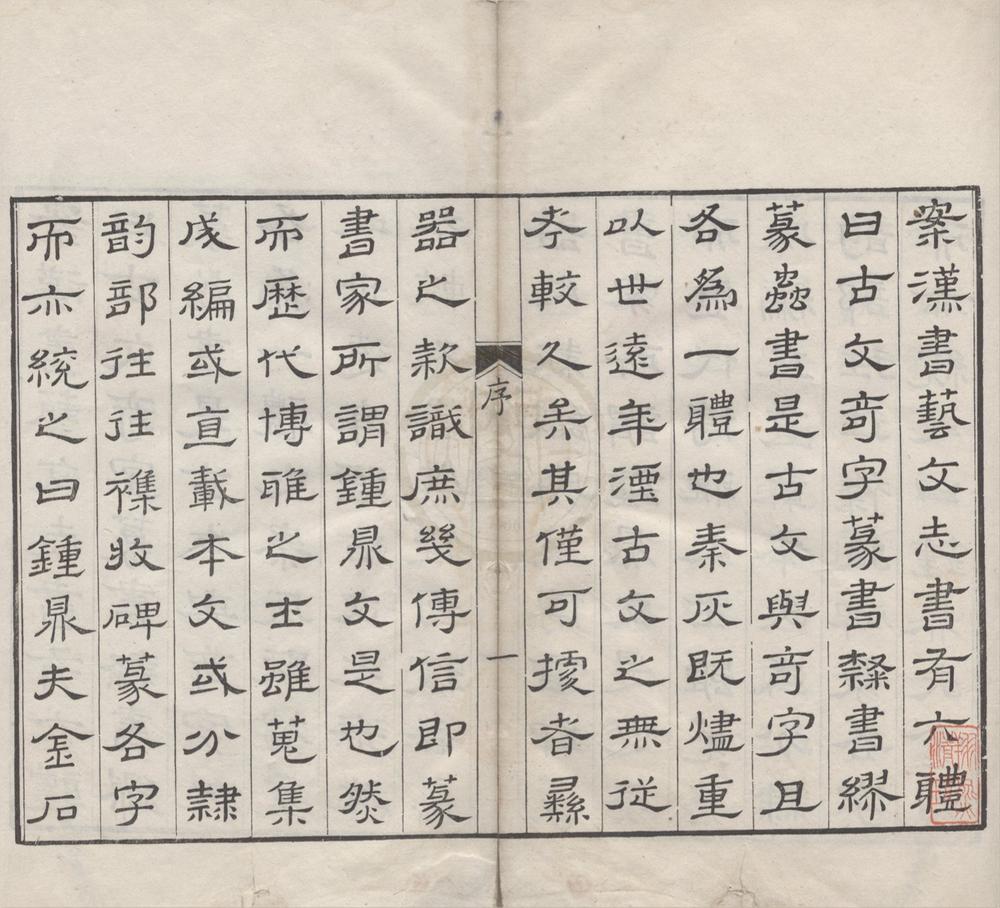 案漢書藝文志書有六體
曰古文奇字篆書隸書繆
篆蟲書是古文與奇字且
各爲一體也秦灰既燼重
以世遠年湮古文之無從
考較久矣其僅可據者彝
序
一
器之款識庶幾傳信即篆
書家所謂鍾鼎文是也然
而歷代博雅之士雖蒐集
成編或亶載本文或分隸
韵部往往襍收碑篆各字
而亦統之曰鍾鼎夫金石